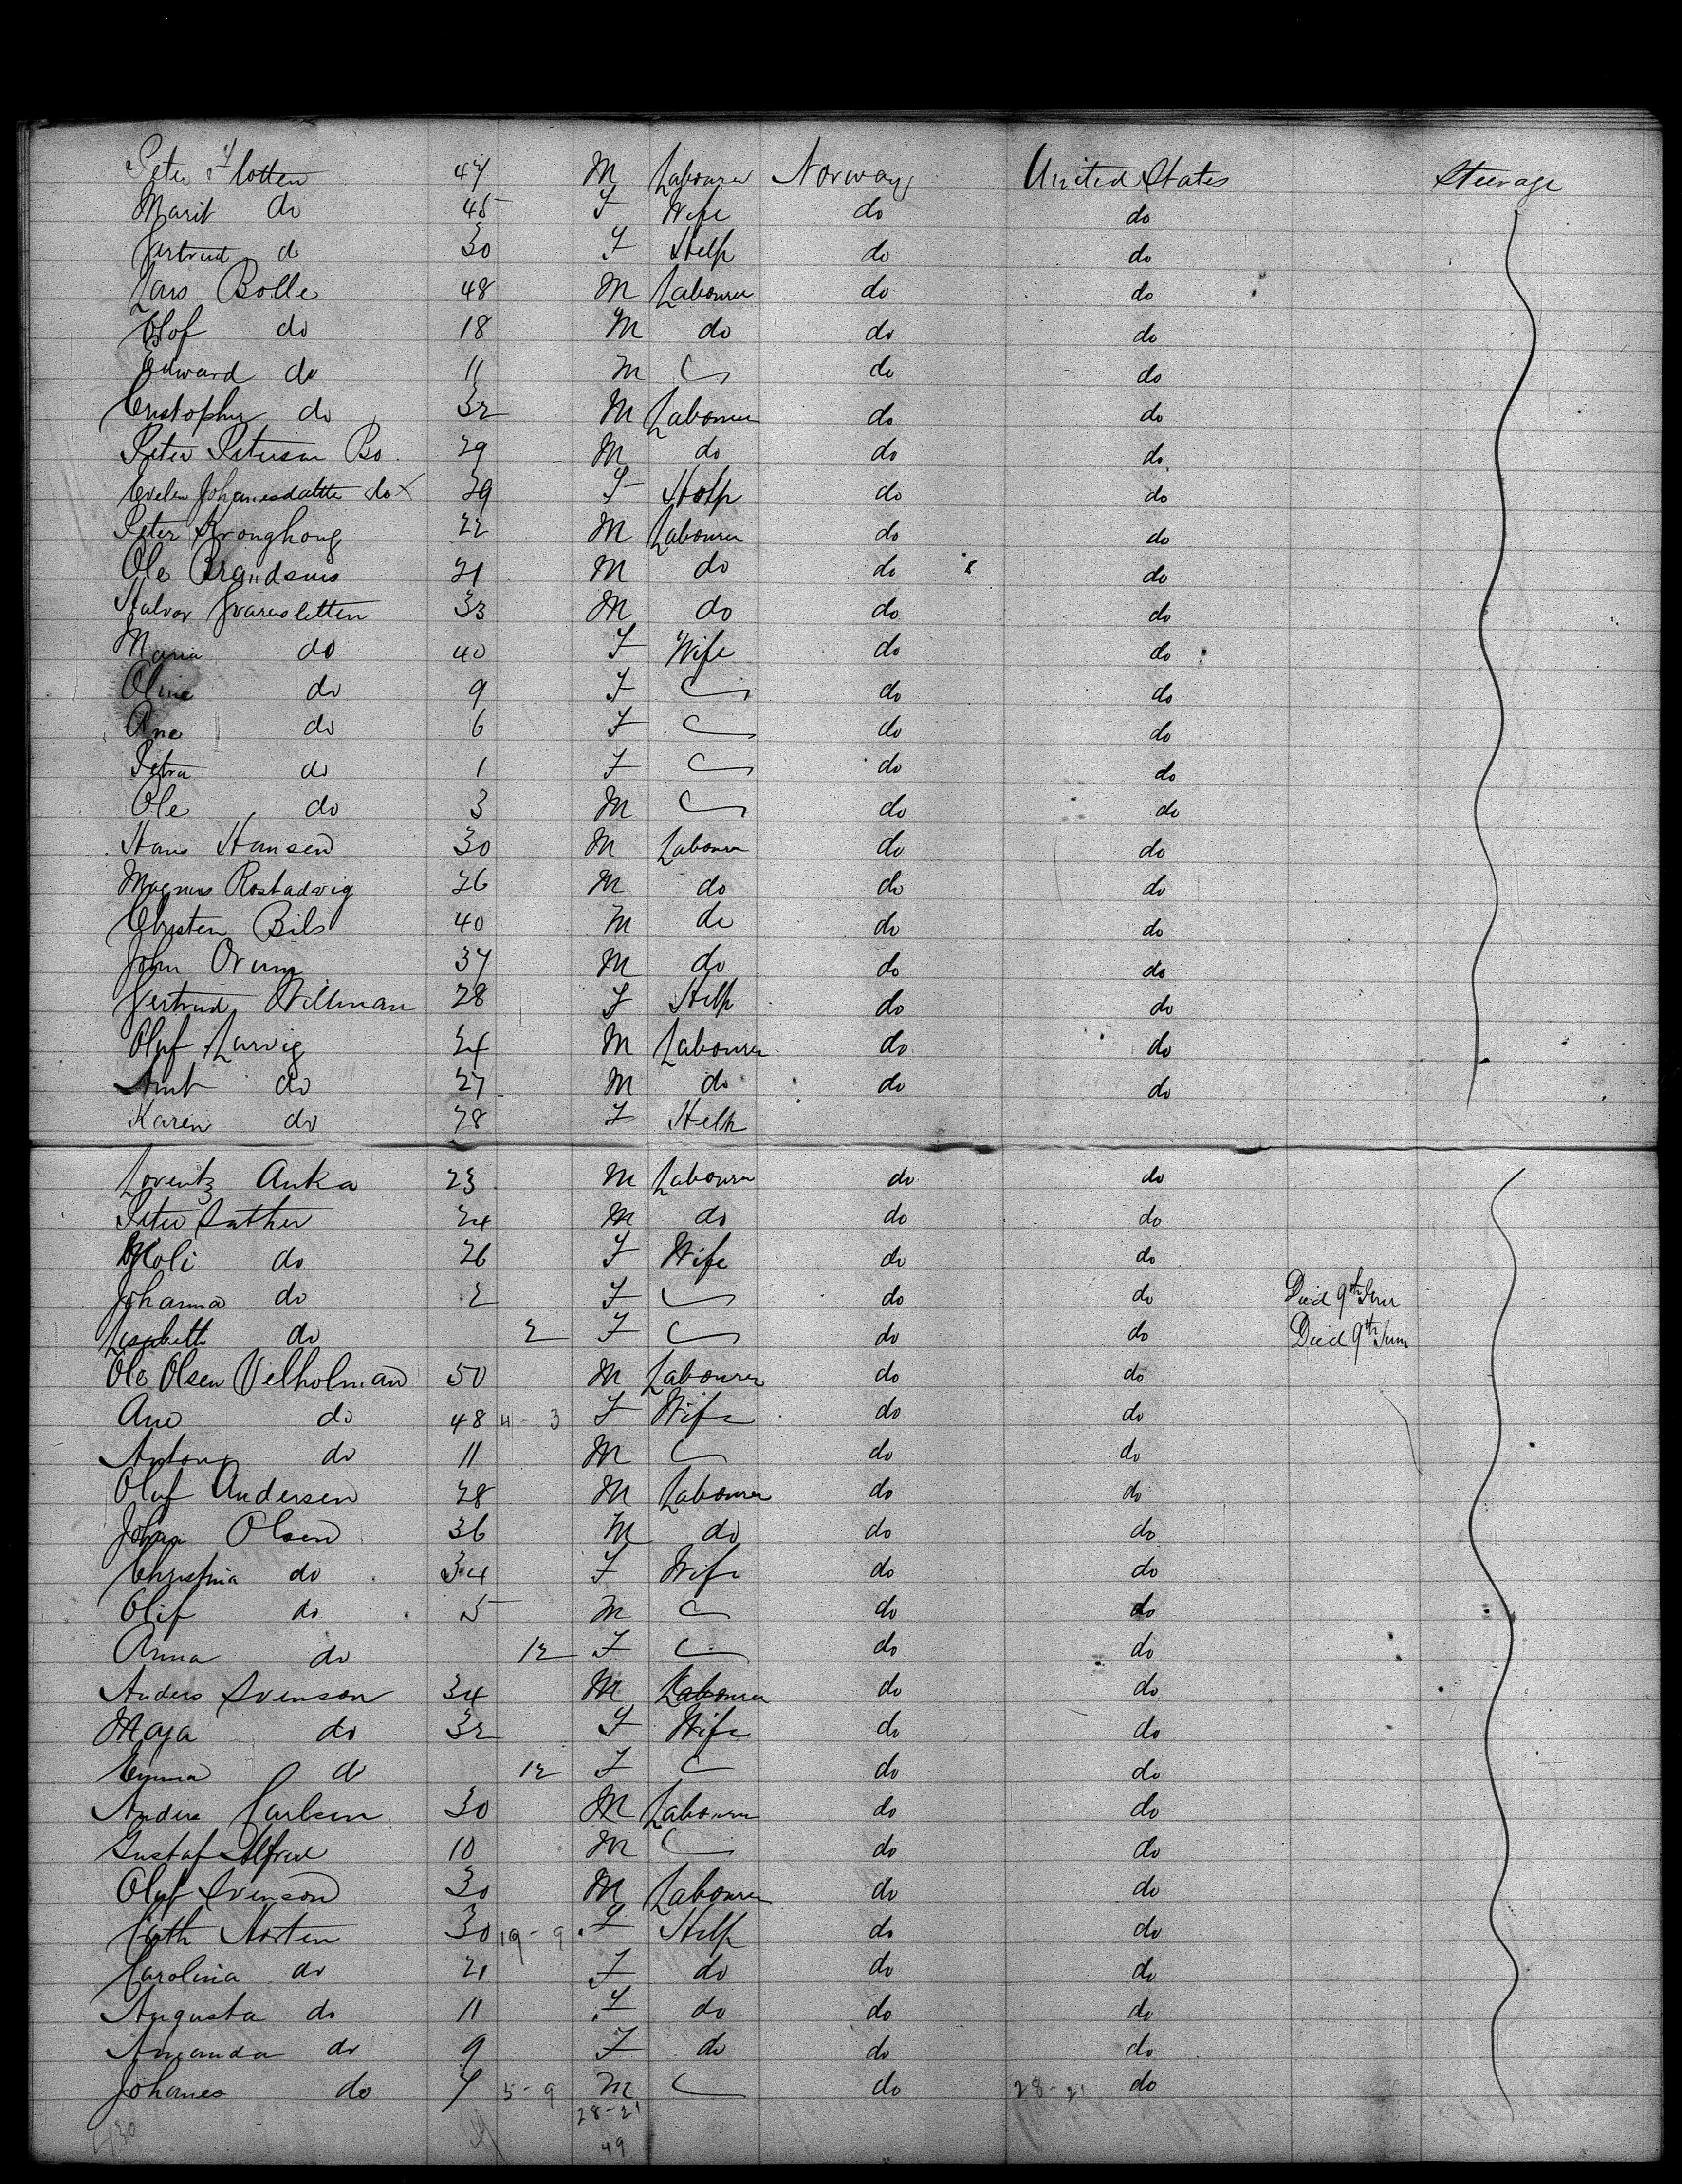 Peter Flotten 47 M Labourer Norway United States Steerage
Marit do 45 F Wife do do
Gertrud do 30 F Help do do
Lars Bolle 48 M Labourer do do
Olof do 18 M do do do
Edward do 11 M do do
Cristopher do 32 M Labourer do do
Peter Peterson Bo 29 M do do do
Evelen Johanesdatter do x 29 F Help do do
Peter Kronghong 22 M Labourer do do
Ole 21 M do do do
Halvor 33 M do do do
Maria do 40 F Wife do do
Oline do 9 F do do
Ane do 6 F do do
Petra do 1 F do do
Ole do 3 M do do
Hans Hansen 30 M Labourer do do
Magnus Rostadvig 26 M do do do
Christen Bils 40 M do do do
John Orum 37 M do do do
Gertrud Willman 28 F Help do do
Oluf Larvig 24 M Labourer do do
Arnt do 27 M do do do
Karen do 28 F Help
Lorentz Anka 23 M Labourer do do
Peter Sather 24 M do do do
Moli do 26 F Wife do do
Johanna do 2 F do do Died 9th June
Lisabeth do 2 F do do Died 9th June
Ole Olsen Velholman 50 M Labourer do do
Ane do 48 11 - 3 F Wife do do
Anton do 11 M do do
Oluf Andersen 28 M Labourer do do
Johan Olsen 36 M do do do
Christina do 34 F Wife do do
Olif do 5 M do do
Anna do 12 F do do
Anders Svenson 34 M Labourer do do
Maja do 32 F Wife do do
Emma do 12 F do do
Anders Carlsen 30 M Labourer do do
Gustaf Alfred 10 M do do
Oluf Svenson 30 M Labourer do do
Cath Horten 30 19 - 9 F Help do do
Carolina do 21 F do do do
Augusta do 11 F do do do
Amanda do 9 F do do do
Johanes do 7 5 - 9 M do 28 - 21 do
28 - 21
49